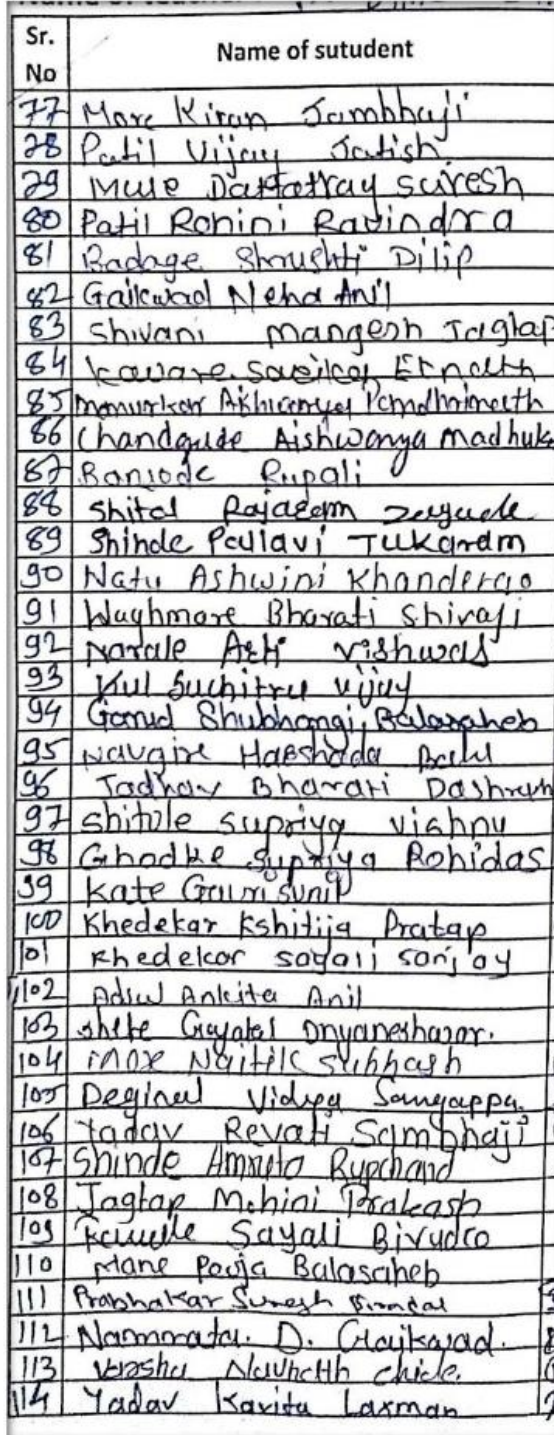 Sr. No Name of sutudent
77 More Kiran Sambhaji
78 Patil Vijay Satish
79 Mule Dattatray Suresh
80 Patil Rohini Ravindra
81 Badage Shrushti Dilip
82 Gaikwad Neha Anil
83 Shivani Mangesh Jagtap
84 Kaware Eknath
85
86 Chandgude Aishwarya Madhuk
87 Bansode Rupali
88 Shital Rajaram
89 Shinde Pallavi Tukaram
90 Natu Ashwini Khanderao
91 Waghmare Bharati Shivaji
92 Narale Arti Vishwas
93 Kul Suchitra Vijay
94 Garud Shubhangi Balasaheb
95 Navgire Harshada Balu
96 Jadhav Bharati Dashrath
97 Shitole Supriya Vishnu
98 Ghodke Supriya Rohidas
99 Kate Gauri Sunil
100 Khedekar Kshitija Pratap
101 Khedekar Sayali Sanjay
102 Adsul Ankita Anil
103 Shete Gayatri Dnyaneshwar.
104 Naitik Subhash
105 Deginal Vidya Sangappa.
106 Yadav Revati Sambhaji
107 Shinde Amruta Rupchand
108 Jagtap Mohini Prakash
109 Sayali
110 Mane Pooja Balasaheb
111 Prabhakar Suresh
112 Nammrata. D. Gaikwad.
113 Varsha Navnath Chide.
114 Yadav Kavita Laxman